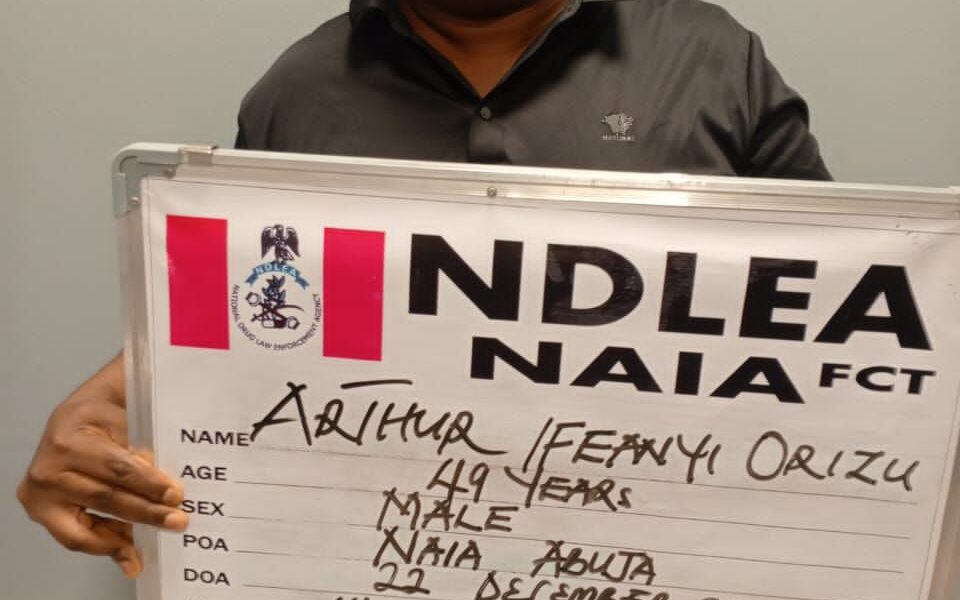 NDLEA
NATIONAL DRUG LAW ENFORCEMENT AGENCY
NDLEA
NAIA FCT
NAME ARTHUR IFEANYI ORIZU
AGE 49 YEARS
SEX MALE
POA NAIA ABUJA
DOA 22 DECEMBER